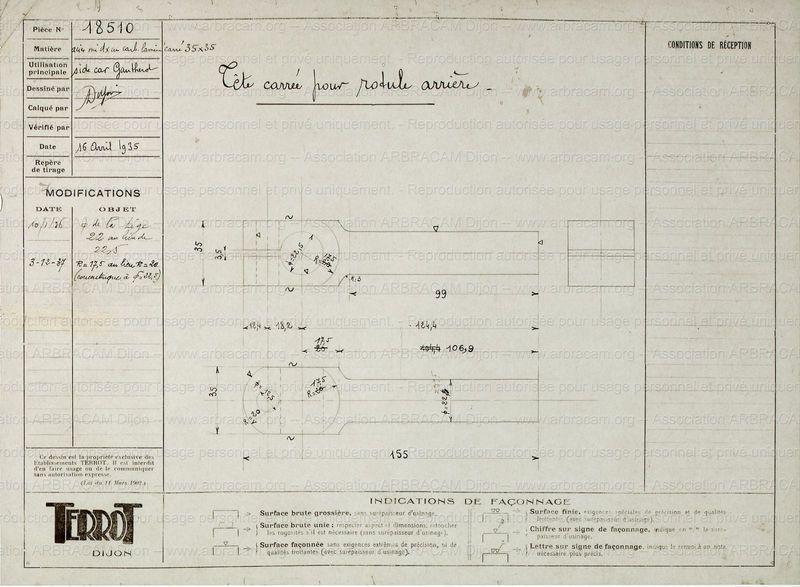 Pièce N° 18510
Matière acier mi dx au carb. lamin carré 35x35
Utilisation principale side car Gautherot
Dessiné par
Calqué par
Vérifié par
Date 16 Avril 1935
Repère de tirage
MODIFICATIONS
DATE OBJET
φ de la tige
22 au lieu de
22,5
3-12-37 R=17,5 au lieu R=20
(concentrique à φ=22,5)
Ce dessin est la propriété exclusive des
Etablissements TERROT. Il est interdit
d'en faire usage ou de le communiquer
sans autorisation expresse.
(Loi du 11 Mars 1902.)
TERROT
DIJON
Tête carrée pour rotule arrière
CONDITIONS DE RÉCEPTION
35
35
φ=22,5
R=3
99
12,4 18,2 124,4
17,5
106,9
35
17,5
R=20
R=20
155
INDICATIONS DE FAÇONNAGE
Surface brute grossière, sans surépaisseur d'usinage.
Surface brute unie : respecter aspect et dimensions, retoucher
les rugosités s'il est nécessaire (sans surépaisseur d'usinage).
Surface façonnée sans exigences extrêmes de précision, ni de
qualités frottantes (avec surépaisseur d'usinage).
Surface finie, exigences spéciales de précision et de qualités
frottantes (avec surépaisseur d'usinage).
Chiffre sur signe de façonnage, indique en
paisseur d'usinage.
Lettre sur signe de façonnage, indique le renvoi en note
nécessaire plus précis.
www.arbracam.org -- Association ARBRACAM Dijon -- Reproduction autorisée pour usage personnel et privé uniquement.